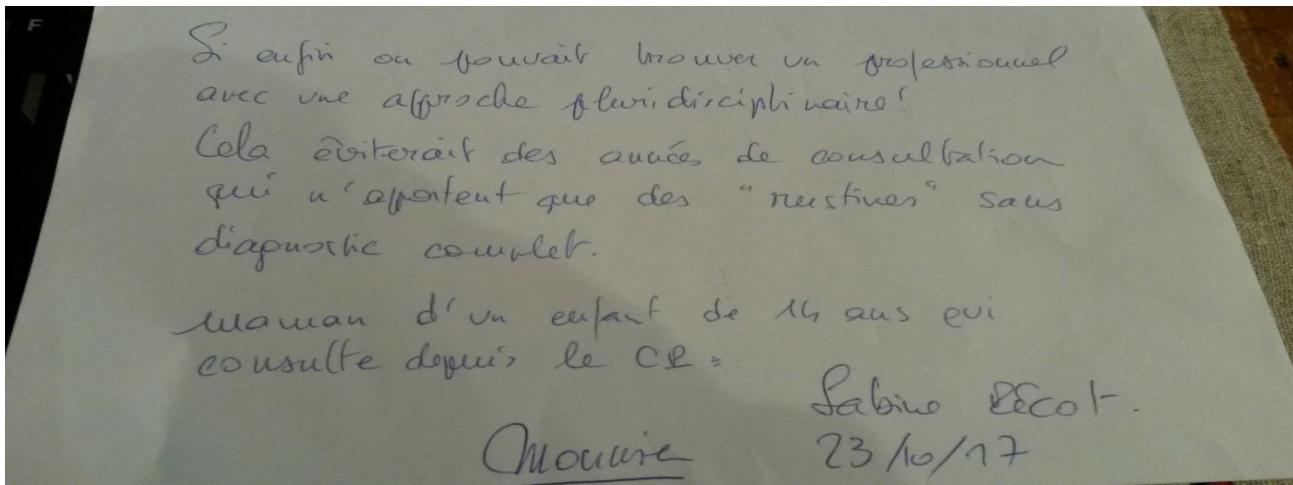 F
Si enfin on pouvait trouver un professionnel
avec une approche pluridisciplinaire!
Cela éviterait des années de consultation
qui n'apportent que des "rustines" sans
diagnostic complet.
Maman d'un enfant de 14 ans qui
consulte depuis le CP.
Sabine
23/10/17